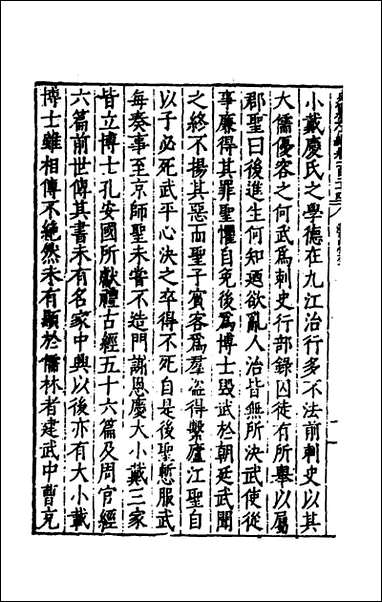 小戴慶氏之學德在九江治行多不法前刺史以其
大儒優容之何武爲刺史行部錄囚徒有所舉以屬
郡聖曰後進生何知廼欲亂人治皆無所決武使從
事廉得其罪聖懼自免後爲博士毀武於朝廷武聞
之終不揚其惡而聖子賓客爲羣盜得繫廬江聖自
以子必死武平心決之卒得不死自是後聖慙服武
每奏事至京師聖未嘗不造門謝恩慶大小戴三家
皆立博士孔安國所獻禮古經五十六篇及周官經
六篇前世傳其書未有名家中興以後亦有大小戴
博士雖相傳不絶然未有顯於儒林者建武中曹充